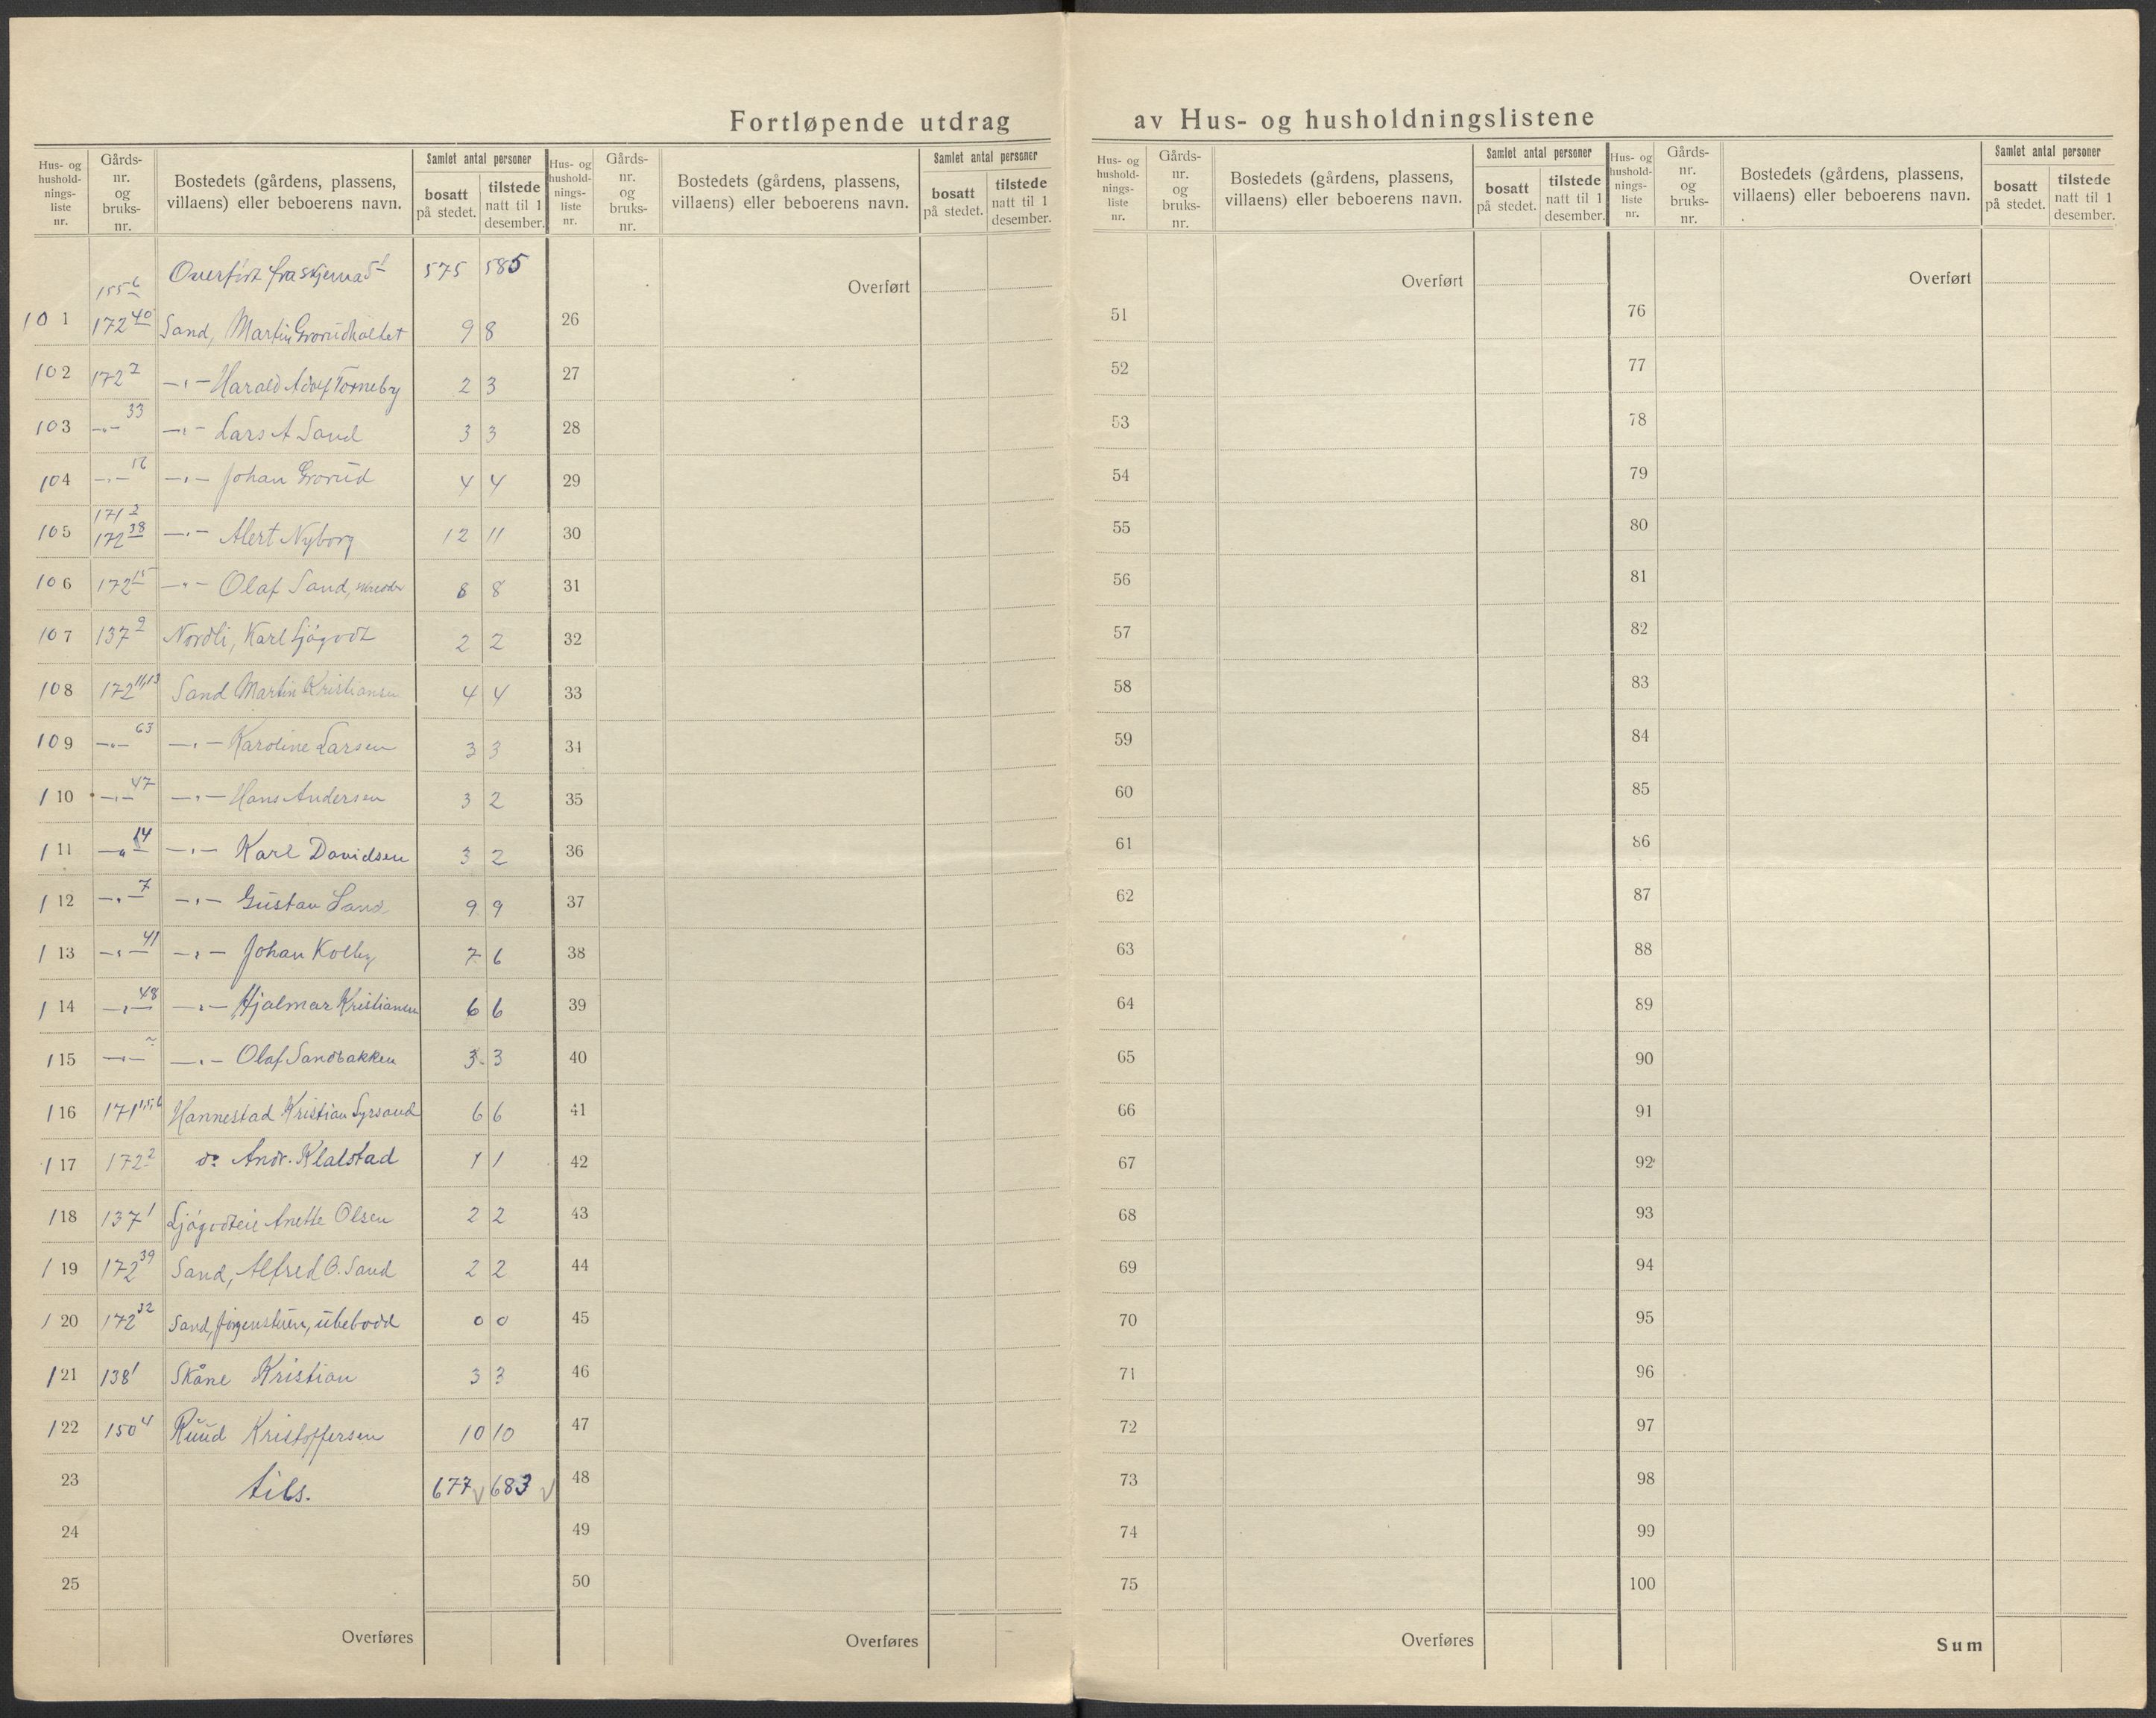 Fortløpende utdrag av Hus- og husholdningslistene
Hus- og hushold- nings- liste nr.
Gårds- nr. og bruks- nr.
Bostedets (gårdens, plassens, villaens) eller beboerens navn.
Samlet antal personer
bosatt på stedet.
tilstede natt til 1 desember.
Hus- og hushold- nings- liste nr.
Gårds- nr. og bruks- nr.
Bostedets (gårdens, plassens, villaens) eller beboerens navn.
Samlet antal personer
bosatt på stedet.
tilstede natt til 1 desember.
Hus- og hushold- nings- liste nr.
Gårds- nr. og bruks- nr.
Bostedets (gårdens, plassens, villaens) eller beboerens navn.
Samlet antal personer
bosatt på stedet.
tilstede natt til 1 desember.
Hus- og hushold- nings- liste nr.
Gårds- nr. og bruks- nr.
Bostedets (gårdens, plassens, villaens) eller beboerens navn.
Samlet antal personer
bosatt på stedet.
tilstede natt til 1 desember.
Overført fra skjema 575 585
155 6
101 172 40 Sand, Martin Grorudholtet 9 8
102 172 7 -"- Harald Adolf Torneby 2 3
103 -"- 33 -"- Lars A Sand 3 3
104 -"- 16 -"- Johan Grorud 4 4
171 2
105 172 38 -"- Alert Nyborg 12 11
106 172 15 -"- Olaf Sand, 8 8
107 137 9 Nordli, Karl Ljøgodt 2 2
108 172 11,13 Sand Martin Kristiansen 4 4
109 -"- 63 -"- Karoline Larsen 3 3
110 -"- 47 -"- Hans Andersen 3 2
111 -"- 14 -"- Karl Davidsen 3 2
112 -"- 7 -"- Gustav Sand 9 9
113 -"- 41 -"- Johan Kolby 7 6
114 -"- 48 -"- Hjalmar Kristiansen 6 6
115 -"- -"- Olaf Sandbakken 3 3
116 171 1,5,6 Hannestad Kristian Lyrsand 6 6
117 172 2 do Andr. Klalstad 1 1
118 137 1 Ljøgodteie Anette Olsen 2 2
119 172 39 Sand, Alfred O. Sand 2 2
120 172 32 Sand, ubebodd 0 0
121 138 1 Skåne Kristian 3 3
122 150 4 Ruud Kristoffersen 10 10
23 tils. 677 683
24
25
Overføres
Overført
26
27
28
29
30
31
32
33
34
35
36
37
38
39
40
41
42
43
44
45
46
47
48
49
50
Overføres
Overført
51
52
53
54
55
56
57
58
59
60
61
62
63
64
65
66
67
68
69
70
71
72
73
74
75
Overføres
Overført
76
77
78
79
80
81
82
83
84
85
86
87
88
89
90
91
92
93
94
95
96
97
98
99
100
Sum